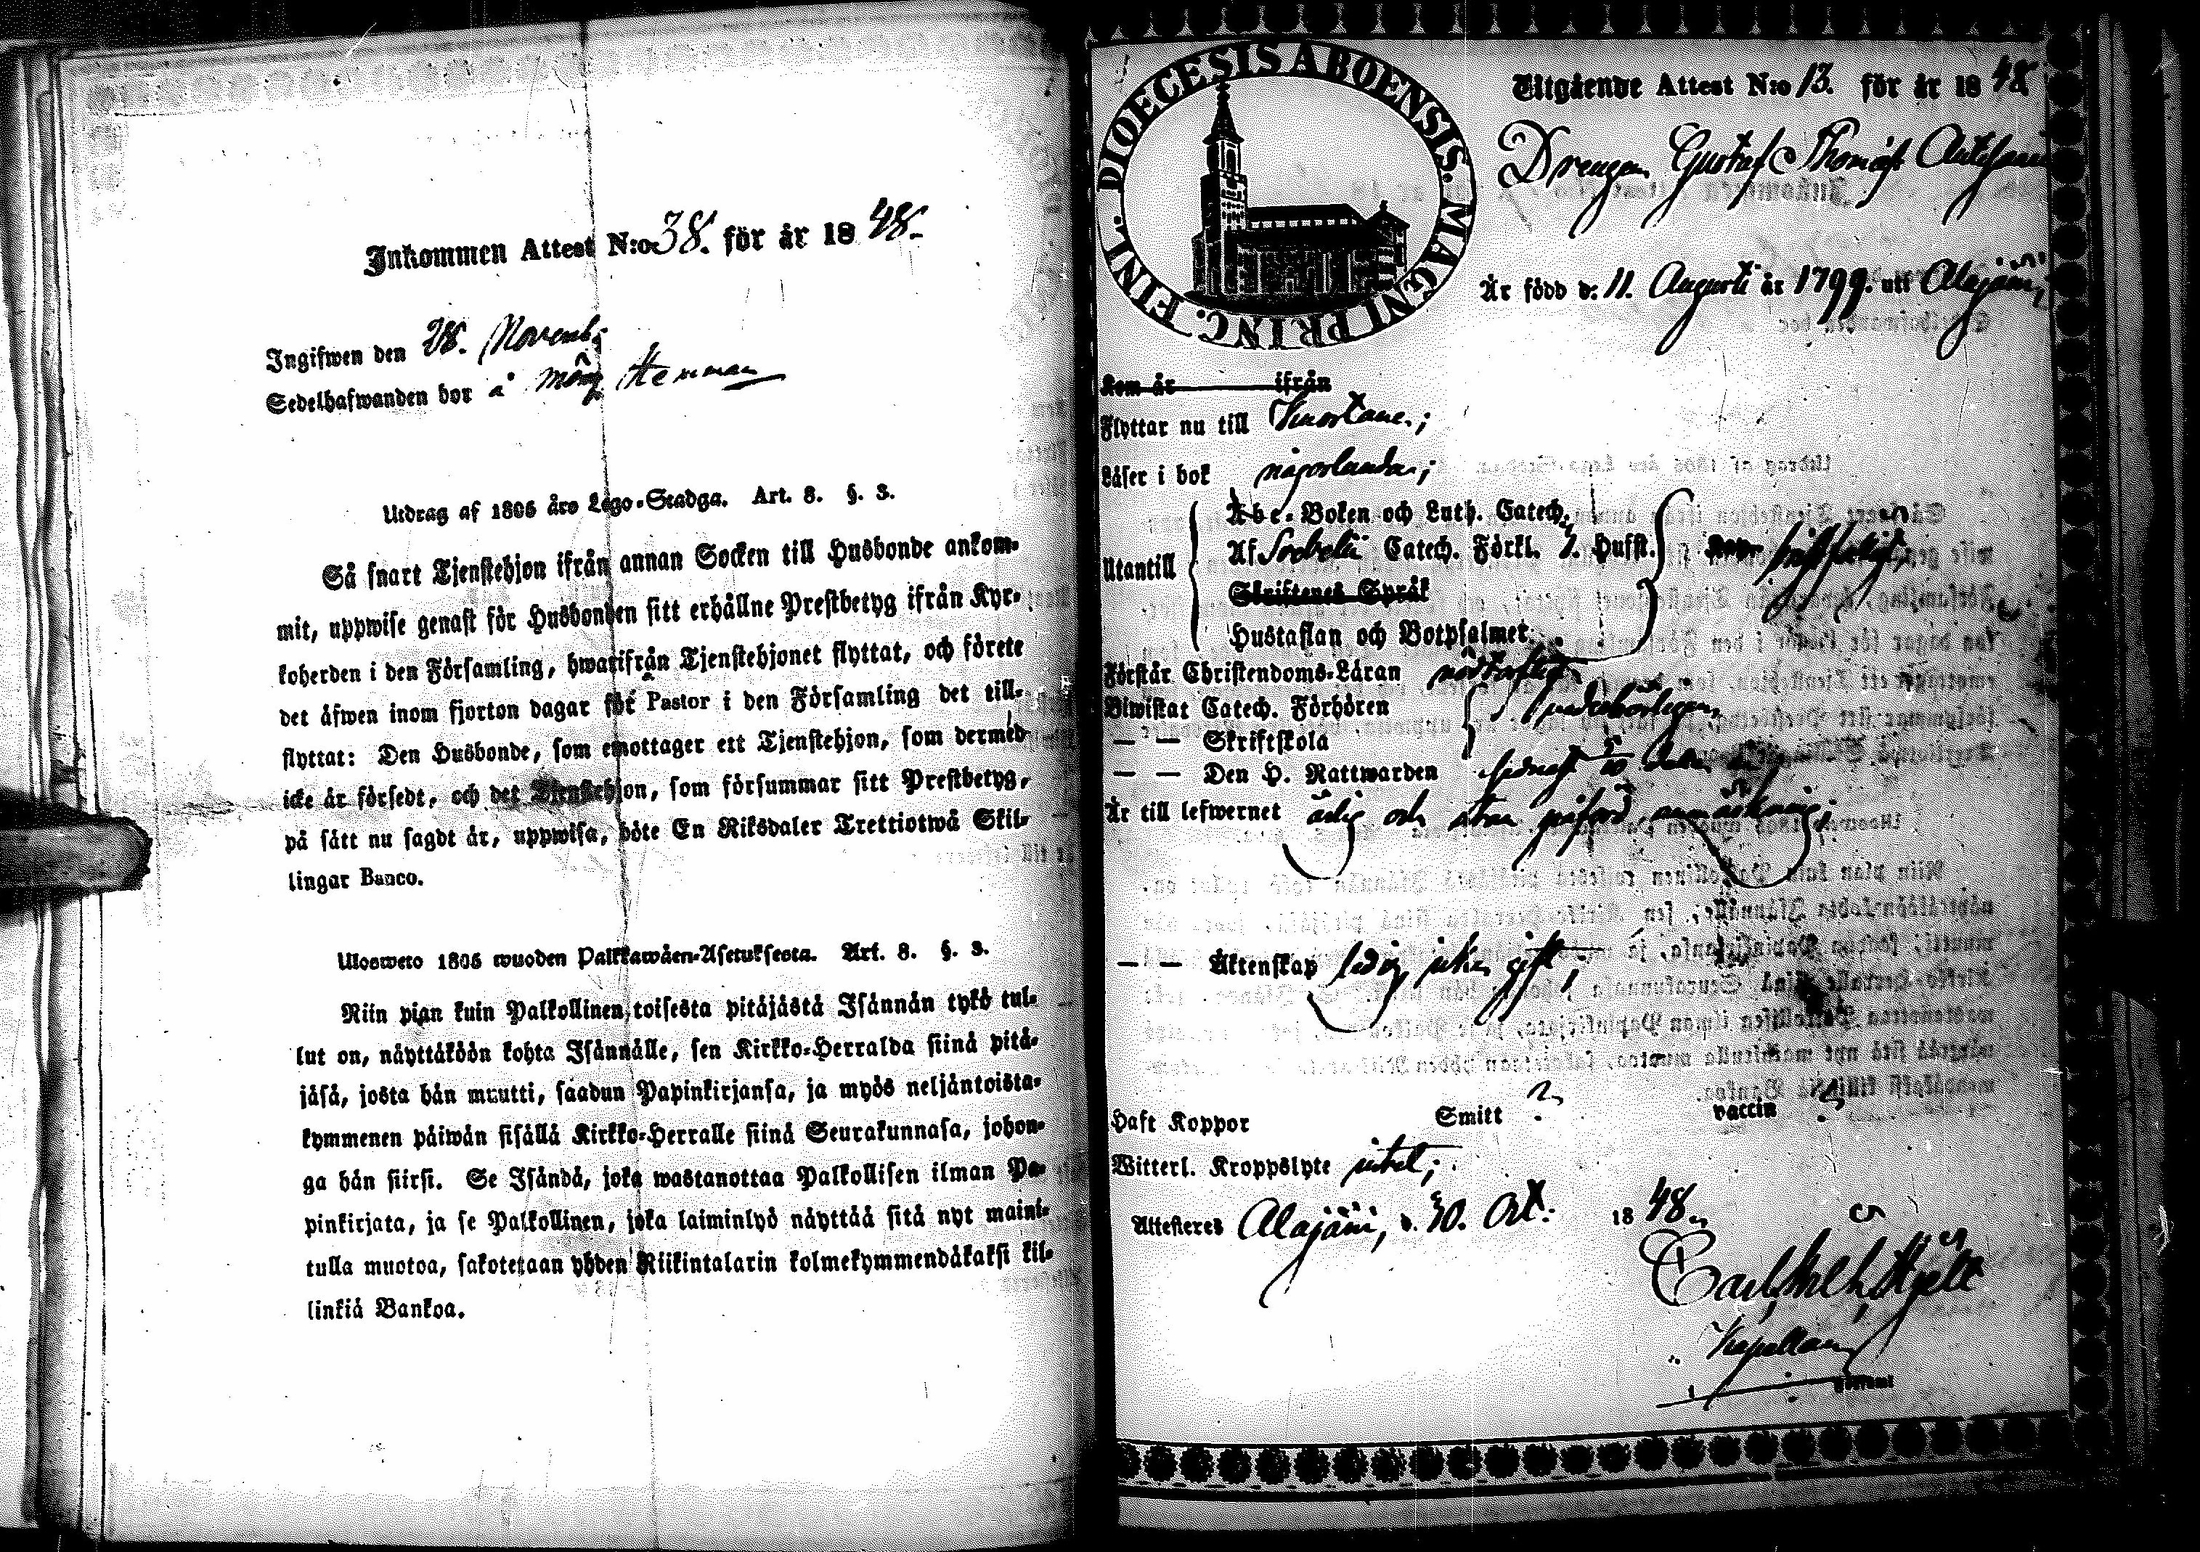 Inkommen Attest N:o 38. för år 1848.
Ingifwen den 28. Novemb:
Sedelhafwanden bor å Hemman
Utdrag af 1805 års Lego-Stadga. Art. 8. §. 3.
Så snart Tjenstehjon ifrån annan Socken till Husbonde ankom-
mit, uppwise genast för Husbonden sitt erhållne Prestbetyg ifrån Kyr-
koherden i den Församling, hwarifrån Tjenstehjonet flyttat, och förete
det äfwen inom fjorton dagar för Pastor i den Församling det till-
flyttat: Den Husbonde, som emottager ett Tjenstehjon, som dermed
icke är försedt, och det Tjenstehjon, som försummar sitt Prestbetyg,
på sätt nu sagdt är, uppwisa, böte En Riksdaler Trettiotwå Skil-
lingar Banco.
Ulosweto 1805 wuoden Palkkawäen-Asetuksesta. Art. 8. §. 3.
Niin pian kuin Palkollinen toisesta pitäjästä Isännän tykö tul-
lut on, näyttäköön kohta Isännälle, sen Kirkko-Herralda siinä pitä-
jäsä, josta hän muutti, saadun Papinkirjansa, ja myös neljäntoista-
kymmenen päiwän sisällä Kirkko-Herralle siinä Seurakunnasa, johon-
ga hän siirsi. Se Isändä, joka wastanottaa Palkollisen ilman Pa-
pinkirjata, ja se Palkollinen, joka laiminlyö näyttää sitä nyt maini-
tulla muotoa, sakotetaan yhden Riikintalarin kolmekymmendäkaksi kil-
linkiä Bankoa.
DIOECESIS ABOENSIS. MAGNI PRINC. FINL.
Utgående Attest N:o 13. för år 1848
Drengen Gustaf Thomass
Är född d: 11. Augusti år 1799. uti Alajärvi,
Kom år ifrån
Flyttar nu till Kuortane;
Läser i bok någorlunda;
Utantill
Abc-Boken och Luth. Catech.
Af Svebelii Catech. Förkl. Hufst.
Skriftenes Språk
Hustaflan och Botpsalmer
Förstår Christendoms-Läran nödtorftigt
Biwistat Catech. Förhören
— — Skriftskola
vederbörligen
— — Den H. Nattwarden
Är till lefwernet ärlig och utan anmärkning;
— — Äktenskap ledig, icke gift;
Haft Koppor Smitt ? vaccin ?
Witterl. Kroppslyte intet;
Attesteres Alajärvi, d. 30. Oct: 1848.
Carl Kapellan